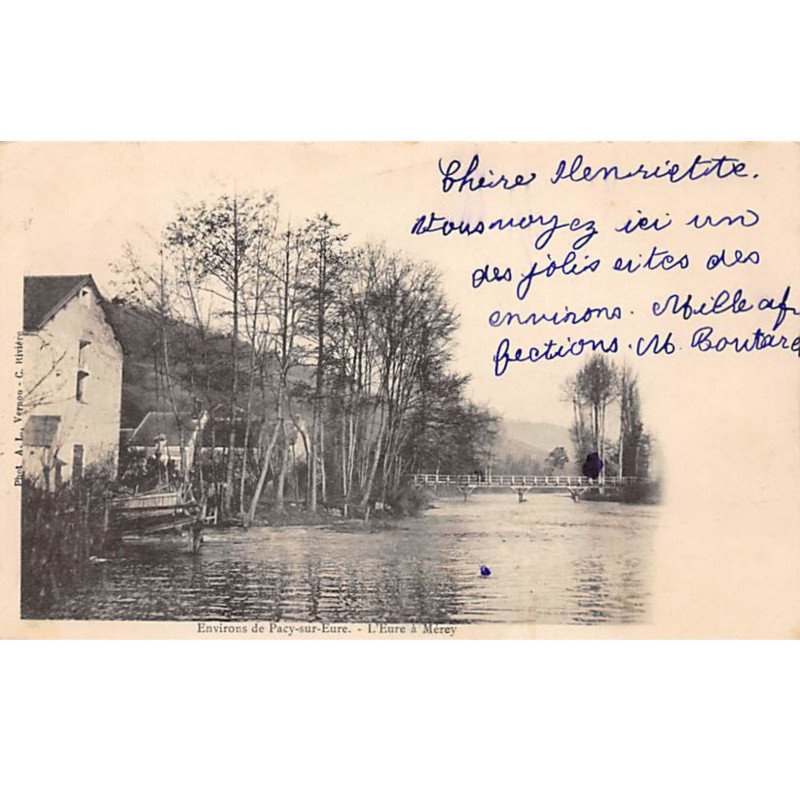 Chère Henriette.
Vous voyez ici un
des jolis sites des
environs. Mille af
fections. M. Boutard
Phot. A. L., Vernon - C. Rivière
Environs de Pacy-sur-Eure. - L'Eure à Mérey